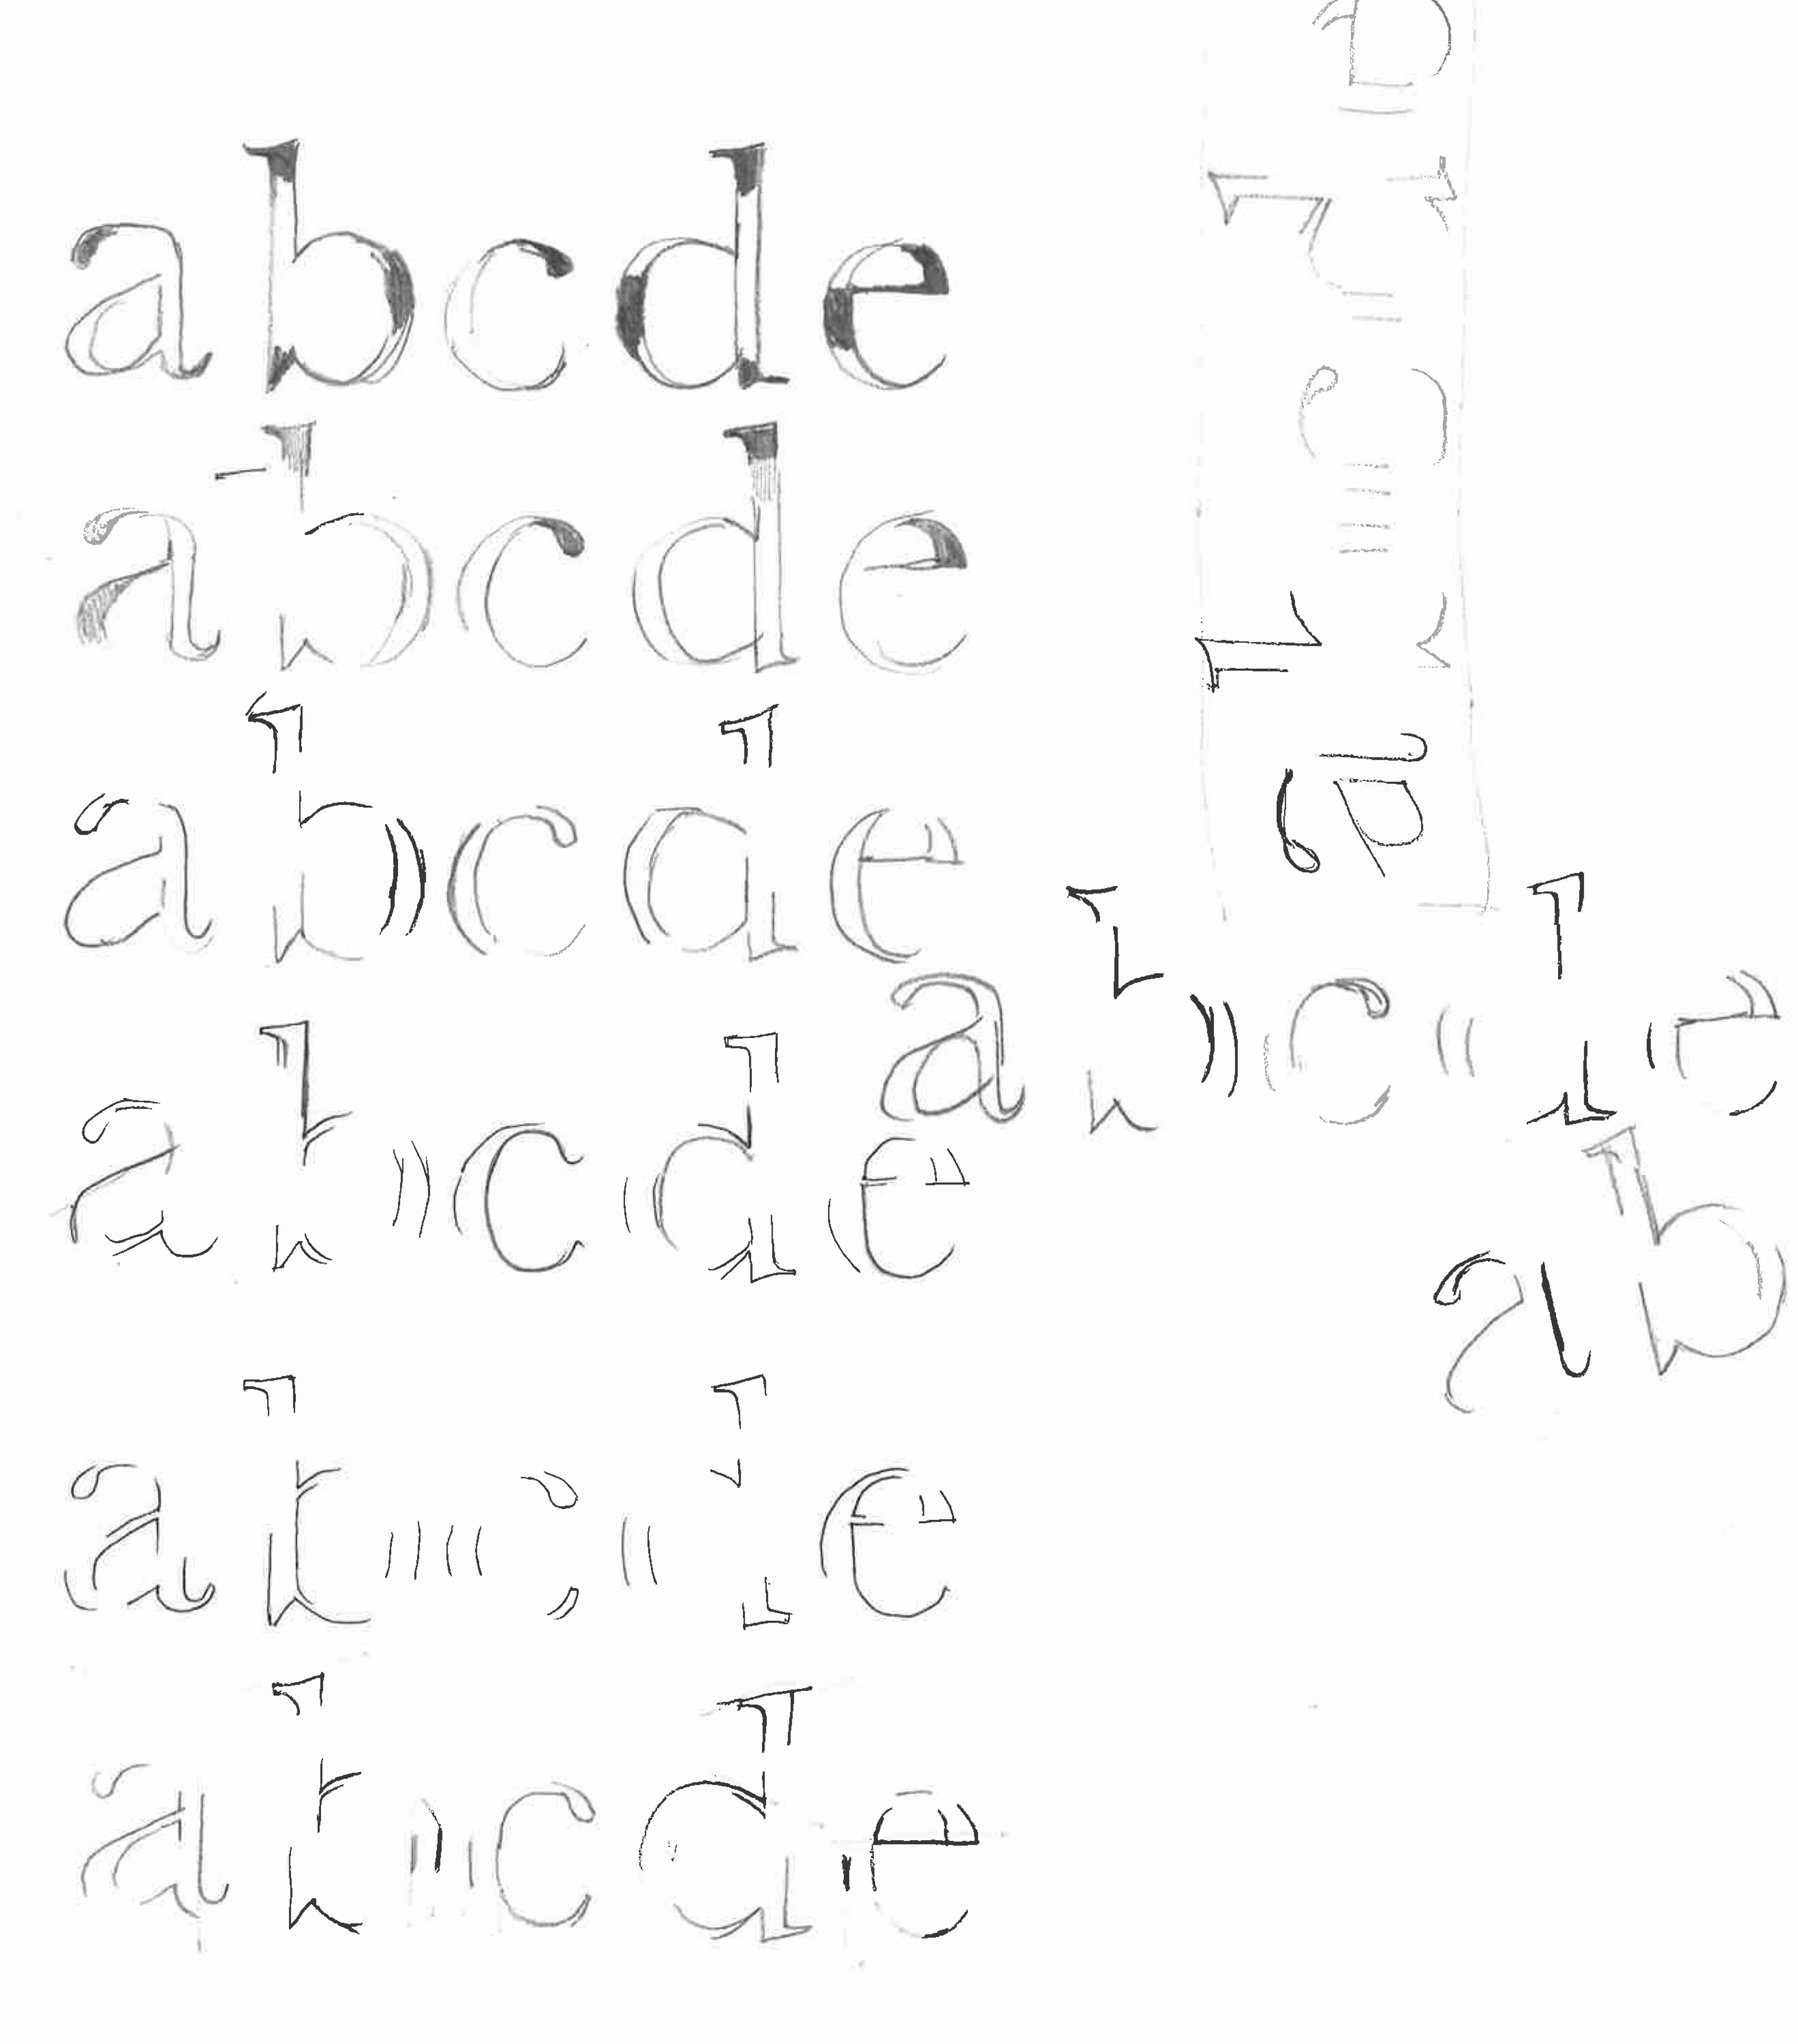 abcde
abcde
abcde
abcde
abcde
abcde
abcde
ab